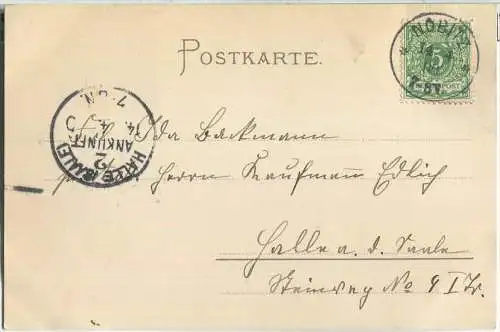 POSTKARTE.
NÖBI
5
POST
HALLE (SAALE)
ANKUNFT
Ida Backmann
Herrn Kaufmann Edlich
Halle a. d. Saale
Steinweg No 9 I Tr.